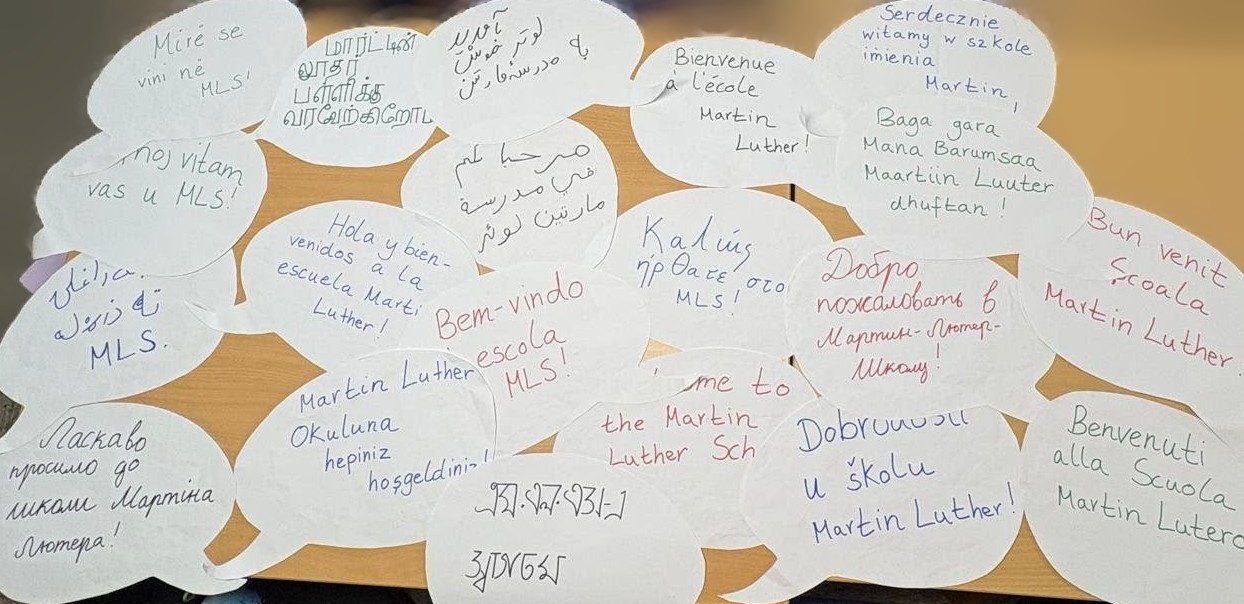 Mirë se
vini në
MLS!
மார்ட்டின்
லூதர்
பள்ளிக்கு
வரவேற்கிறோம்
آمدید
لوتر خوش
به مدرسه مارتین
Bienvenue
à l'école
Martin
Luther!
Serdecznie
witamy w szkole
imienia
Martin
moj vitam
vas u MLS!
مرحبا بكم
في مدرسة
مارتين لوثر
Baga gara
Mana Barumsaa
Maartiin Luuter
dhuftan!
Hola y bien-
venidos a la
escuela Marti
Luther!
Καλώς
ήρθατε στο
MLS!
Bun venit
Școala
Martin Luther
MLS.
Bem-vindo
escola
MLS!
Добро
пожаловать в
Мартин-Лютер-
Школу!
Ласкаво
просимо до
школи Мартіна
Лютера!
Martin Luther
Okuluna
hepiniz
hoşgeldiniz!
me to
the Martin
Luther Sch
u školu
Martin Luther!
Benvenuti
alla Scuola
Martin Lutero